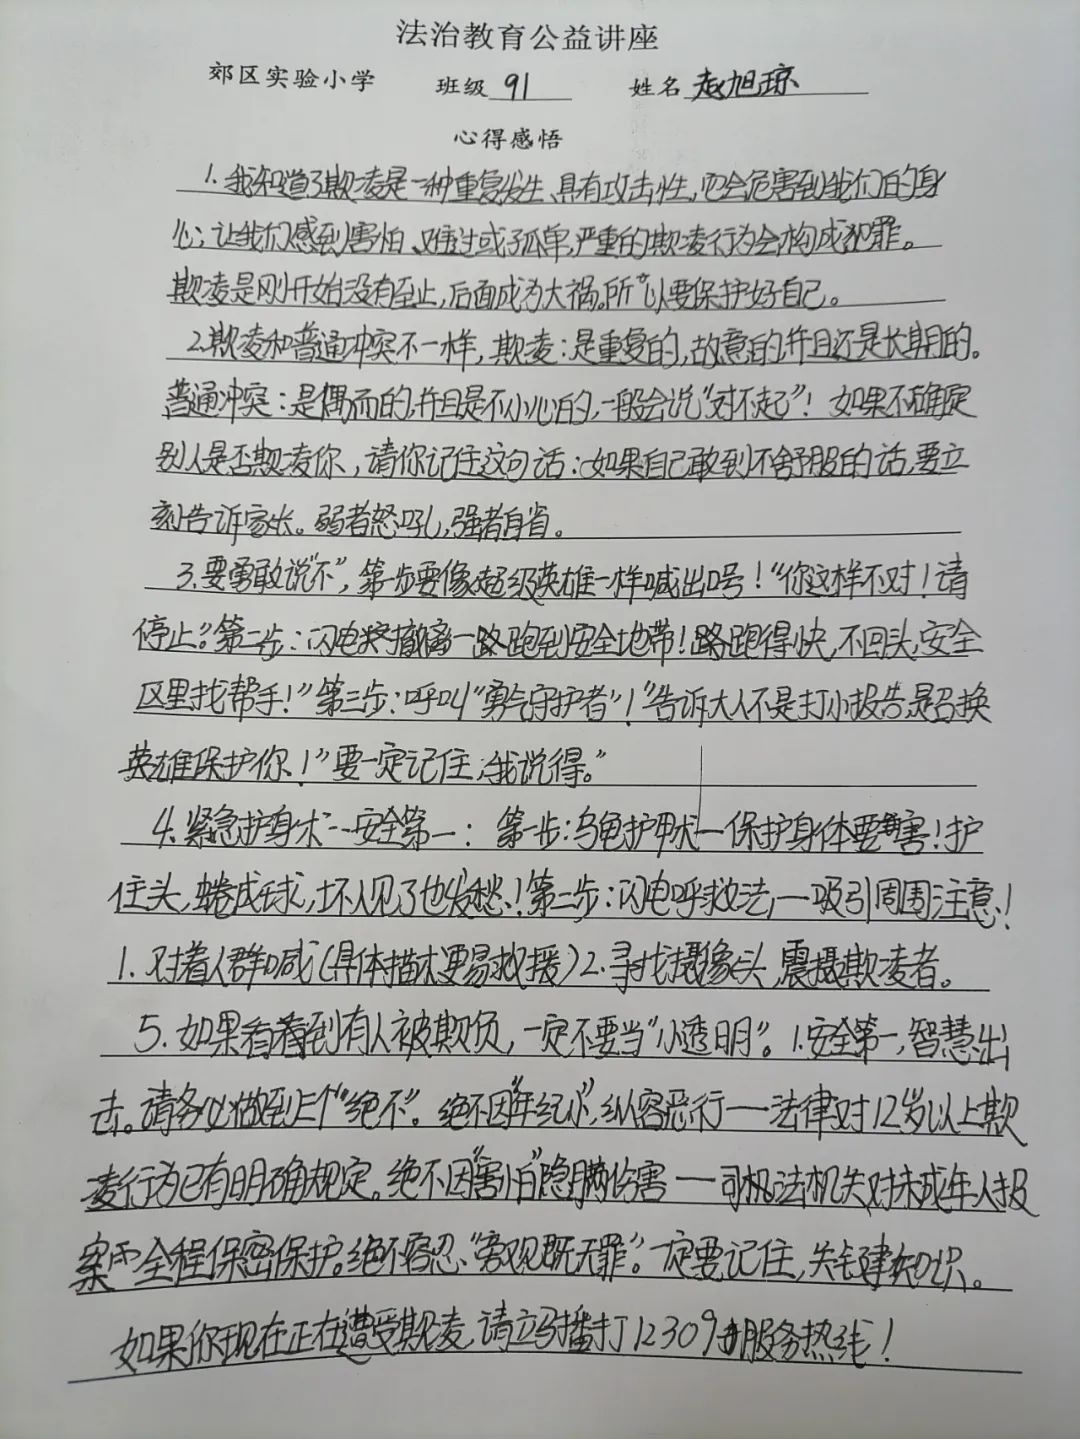 法治教育公益讲座
郊区实验小学 班级 91 姓名 赵旭琼
心得感悟
1.我知道了欺凌是一种重复发生、具有攻击性,也会危害到我们的身
心,让我们感到害怕、难过或孤单,严重的欺凌行为会构成犯罪。
欺凌是刚开始没有至止,后面成为大祸。所以要保护好自己。
2.欺凌和普通冲突不一样,欺凌:是重复的,故意的并且还是长期的。
普通冲突:是偶而的,并且是不小心的,一般会说“对不起”!如果不确定
别人是否欺凌你,请你记住这句话:如果自己敢到不舒服的话,要立
刻告诉家长。弱者怒吼,强者自省。
3.要勇敢说“不”,第一步要像超级英雄一样喊出口号!“你这样不对!请
停止”。第二步:闪电撤离一路跑到安全地带!路跑得快,不回头,安全
区里找帮手!”第三步:呼叫“勇气守护者”!“告诉大人不是打小报告,是召换
英雄保护你!”要一定记住,我说得。”
4.紧急护身术--安全第一:第一步:乌龟护甲状—保护身体要害!护
住头,蜷成球,坏人见了也发愁!第二步:闪电呼救法,—吸引周围注意!
1.对着人群喊(具体描术更易救援)2.寻找摄像头,震摄欺凌者。
5.如果看看到有人被欺负,一定不要当“小透明”。1.安全第一,智慧出
击。请务必做到三个“绝不”。绝不因“年纪小”,纵容恶行——法律对12岁以上欺
凌行为已有明确规定。绝不因“害怕”隐瞒伤害——司机法机关对未成年人报
案全程保密保护。绝不容忍“旁观既无罪”。一定要记住,关键建知识。
如果你现在正在遭受欺凌,请立马播打12309服务热线!